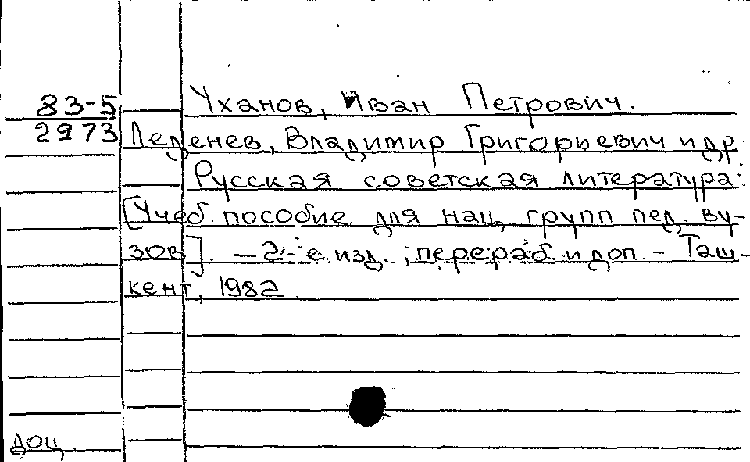 83-5 Уханов, Иван Петрович.
2973 Леденев, Владимир Григорьевич и др.
Русская советская литература:
[Учеб. пособие для нац. групп пед. ву-
зов]. – 2-е изд., перераб. и доп. – Таш-
кент, 1982
доц.